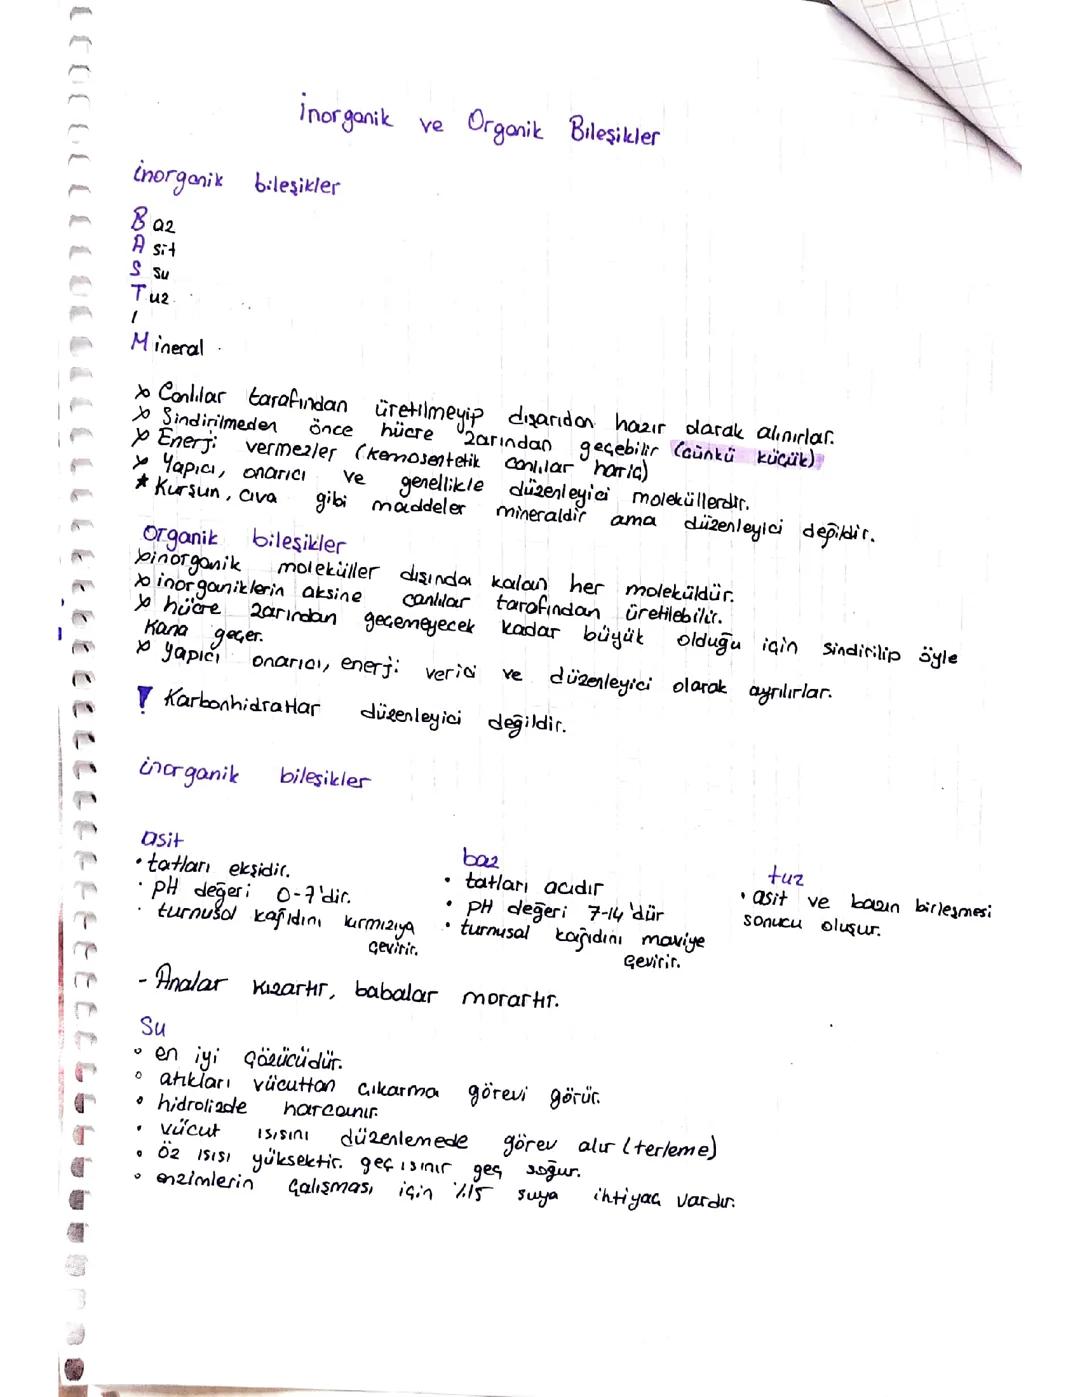 inorganik ve Organik Bileşikler
inorganik bileşikler
Baz
Asit
S su
Tuz
I
Mineral
Canlılar tarafından üretilmeyip dışarıdan hazır olarak alınırlar.
Sindirilmeden önce hücre zarından geçebilir (Günkü küçük)
Enerji vermezler (kemosentetik canlılar hariç)
Yapıcı, onarıcı ve genellikle düzenleyici moleküllerdir.
★ Kurşun, civa gibi maddeler mineraldir ama düzenleyici değildir.
organik bileşikler
inorganik moleküller dışında kalan her moleküldür.
inorganiklerin aksine canlılar tarafından üretilebilir.
hücre zarından geçemeyecek kadar büyük olduğu için sindirilip öyle
kana geçer.
yapıcı onarıcı, enerji verici ve düzenleyici olarak ayrılırlar.
! Karbonhidratlar düzenleyici değildir.
inorganik bileşikler
asit
• tatları ekşidir.
• pH değeri 0-7'dir.
• turnusol kağıdını kırmızıya
çevirir.
baz
• tatları acıdır
• PH değeri 7-14'dür
• turnusal kağıdını maviye
çevirir.
tuz
• asit ve bazın birleşmesi
sonucu oluşur.
- Analar kızartır, babalar morartır.
Su
• en iyi çözücüdür.
• atıkları vücuttan çıkarma görevi görür.
• hidrolizde harcanır.
• vücut ısısını düzenlemede görev alır (terleme)
• öz ısısı yüksektir. geç ısınır geç soğur.
• enzimlerin çalışması için %15 suya ihtiyaç vardır.